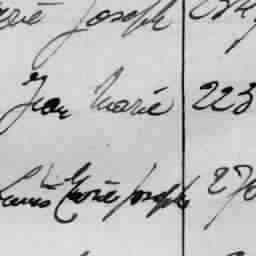 Joseph
Jean Marie 223
Louis Marie Joseph 270